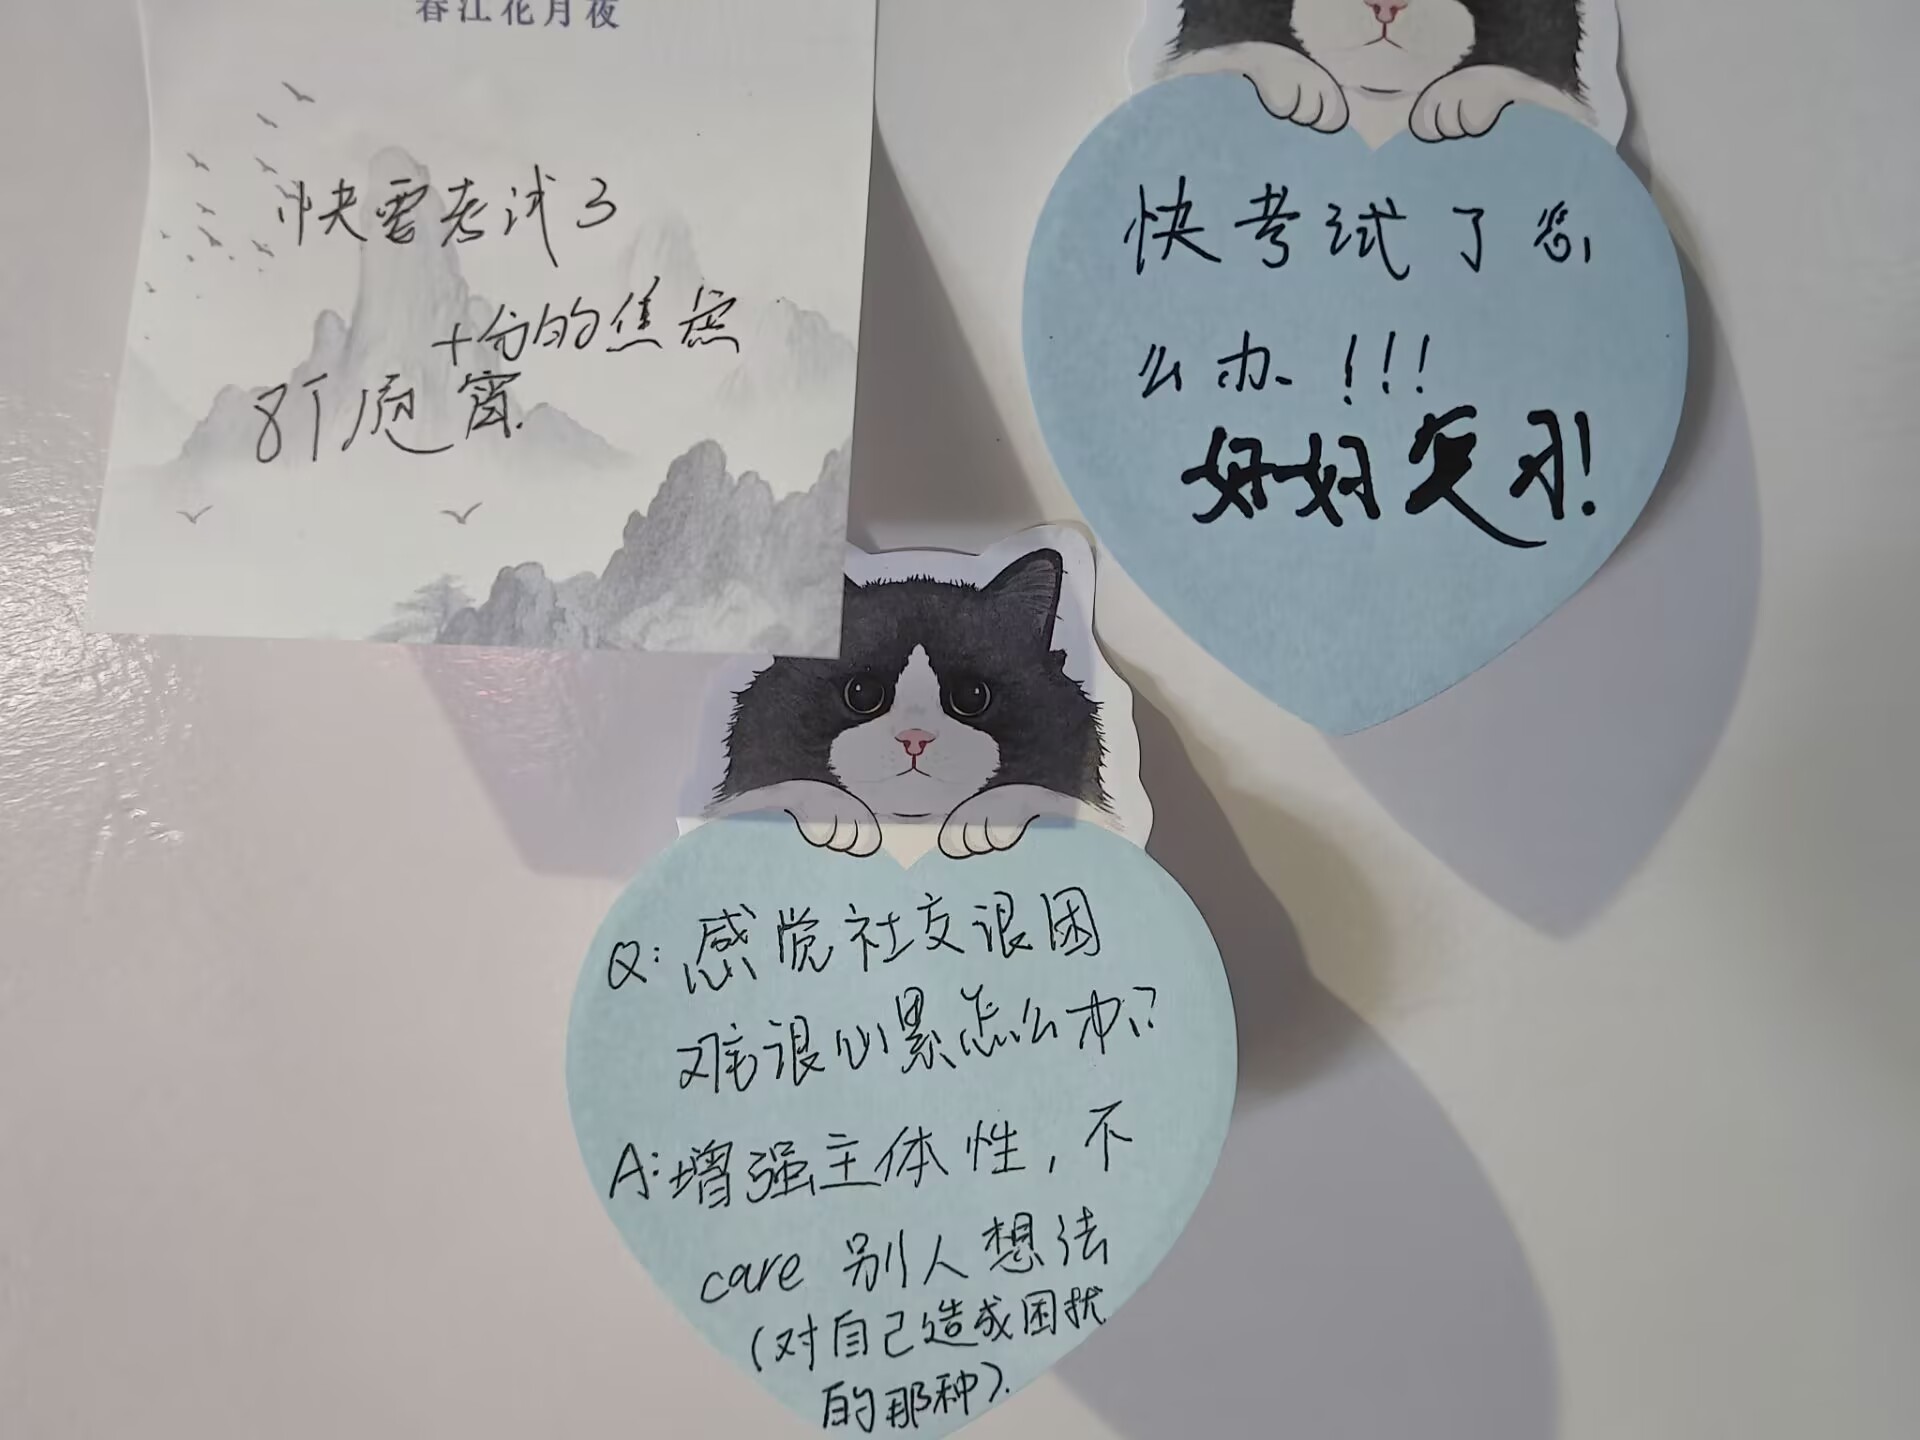 春江花月夜
快要考试了
十分的焦虑
快考试了怎
么办!!!
好好复习!
Q:感觉社交很困
难很心累怎么办?
A:增强主体性,不
care 别人想法
(对自己造成困扰
的那种).